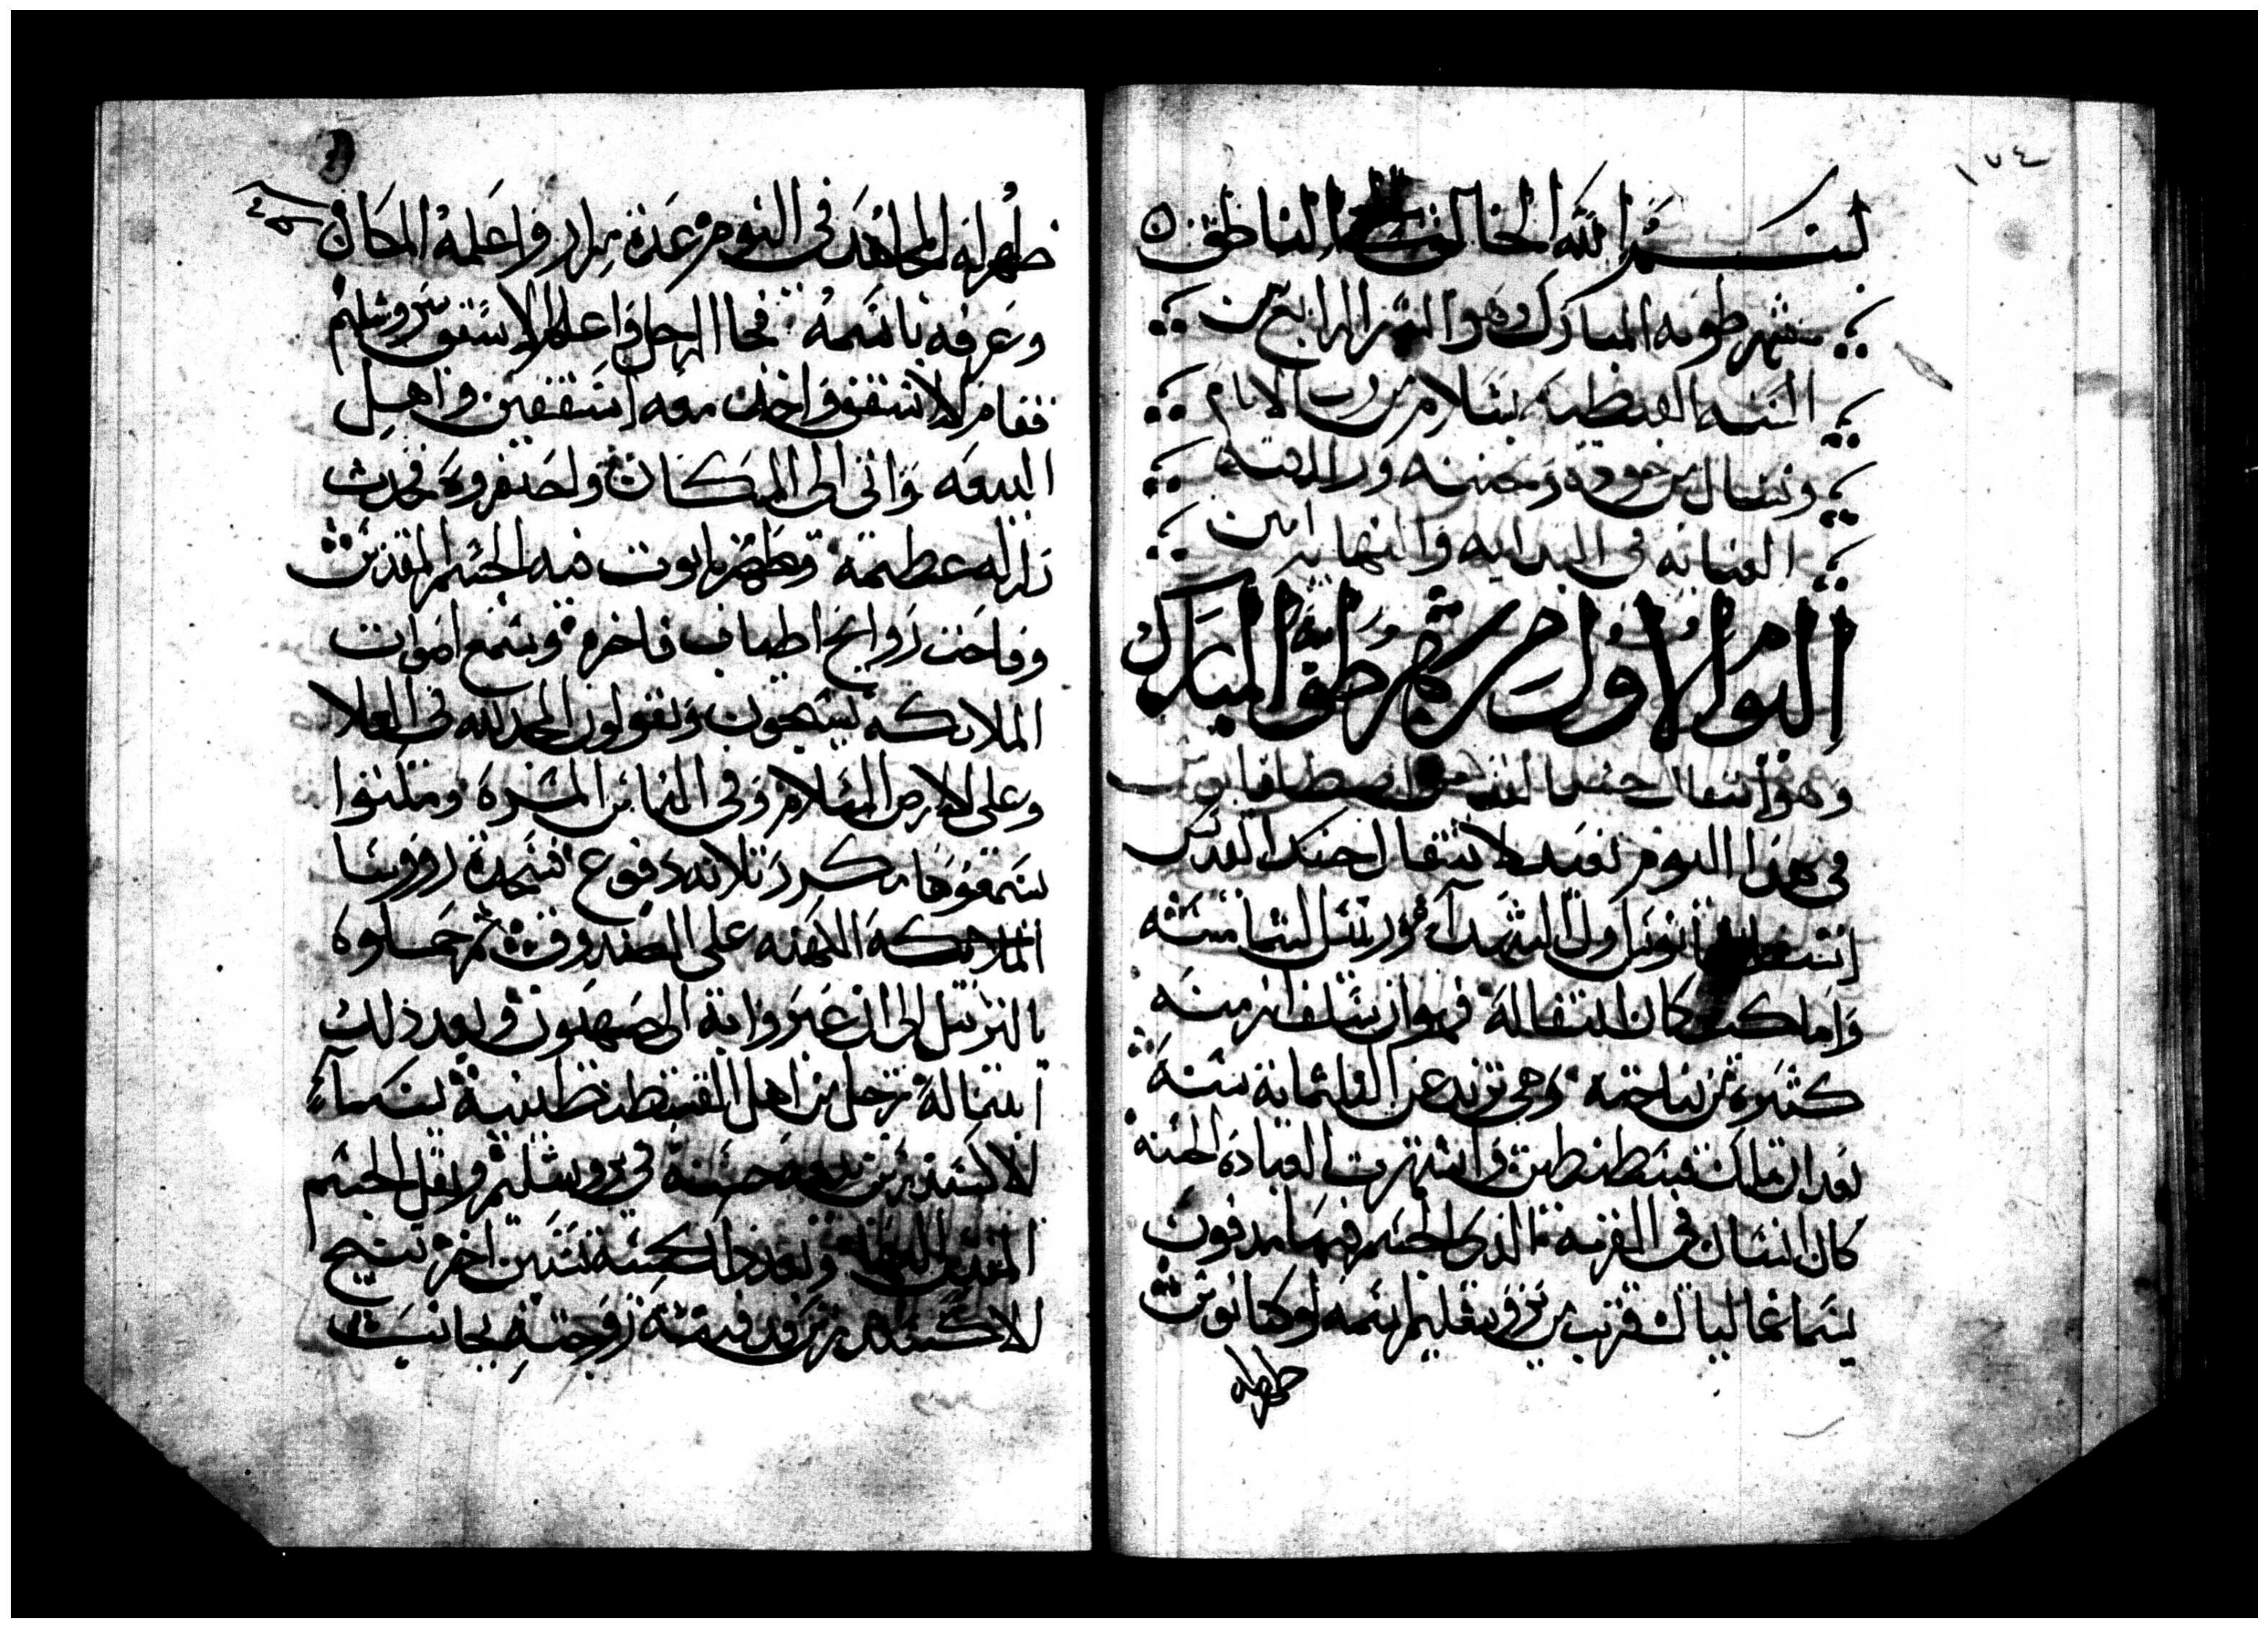 ١٧٤
بسم الله الخالق الحي الناطق
شهر طوبه المبارك وهو الشهر الرابع من
السنه القبطيه بسلام من رب الانام
ونسال من جوده وتحننه ورافته
العنايه في البدايه والنهايه امين
اليوم الاول من شهر طوبه المبارك
وهو انتقال جسد القديس اصطفانوس
في هذا اليوم نعيد لانتقال جسد القديس
اسطفانوس اول الشهدآء وريس الشمامسه
واما كيف كان انتقاله فهو ان سلف ازمنه
كثيره من نياحته وهي تزيد عن الثلثماية سنة
بعد ان ملك قسطنطين وانتشرت العبادة الحسنه
كان انسان في القريه الذي الجسم فيها مدفون
بشماغماليال قريب من يروشليم اسمه لوكيانوس
ظهر له
ظهر له المجاهد في النوم عدة مرار واعلمه المكان
وعرفه باسمه فجا الرجل واعلم الاسقف بيروشليم
فقام الاسقف واخذ معه اسقفين واهل
البيعه واتى الى المكان واحتفروه فحدث
زلزله عظيمة وظهر تابوت فيه الجسم المقدس
وفاحت روايح اطياب فاخره وسمع اصوات
الملايكه يسبحون ويقولون المجد لله في العلا
وعلى الارض السلام وفي الناس المسرة ومكثوا
يسمعوها مكرر ثلاثه دفوع فسجدة رووسا
الملايكة الكهنه على الصندوق ثم حملوه
بالترتيل الى ان عبروا به الى صهيون وبعد ذلك
ابتنا له رجل من اهل القسطنطينية يسما
الاكسندرس بيعه حسنة في يروشليم ونقل الجسم
المقدس اليها وبعد ذلك بخمسة سنين اخر تنيح
الاكسندرس فدفنته زوجته بجانب